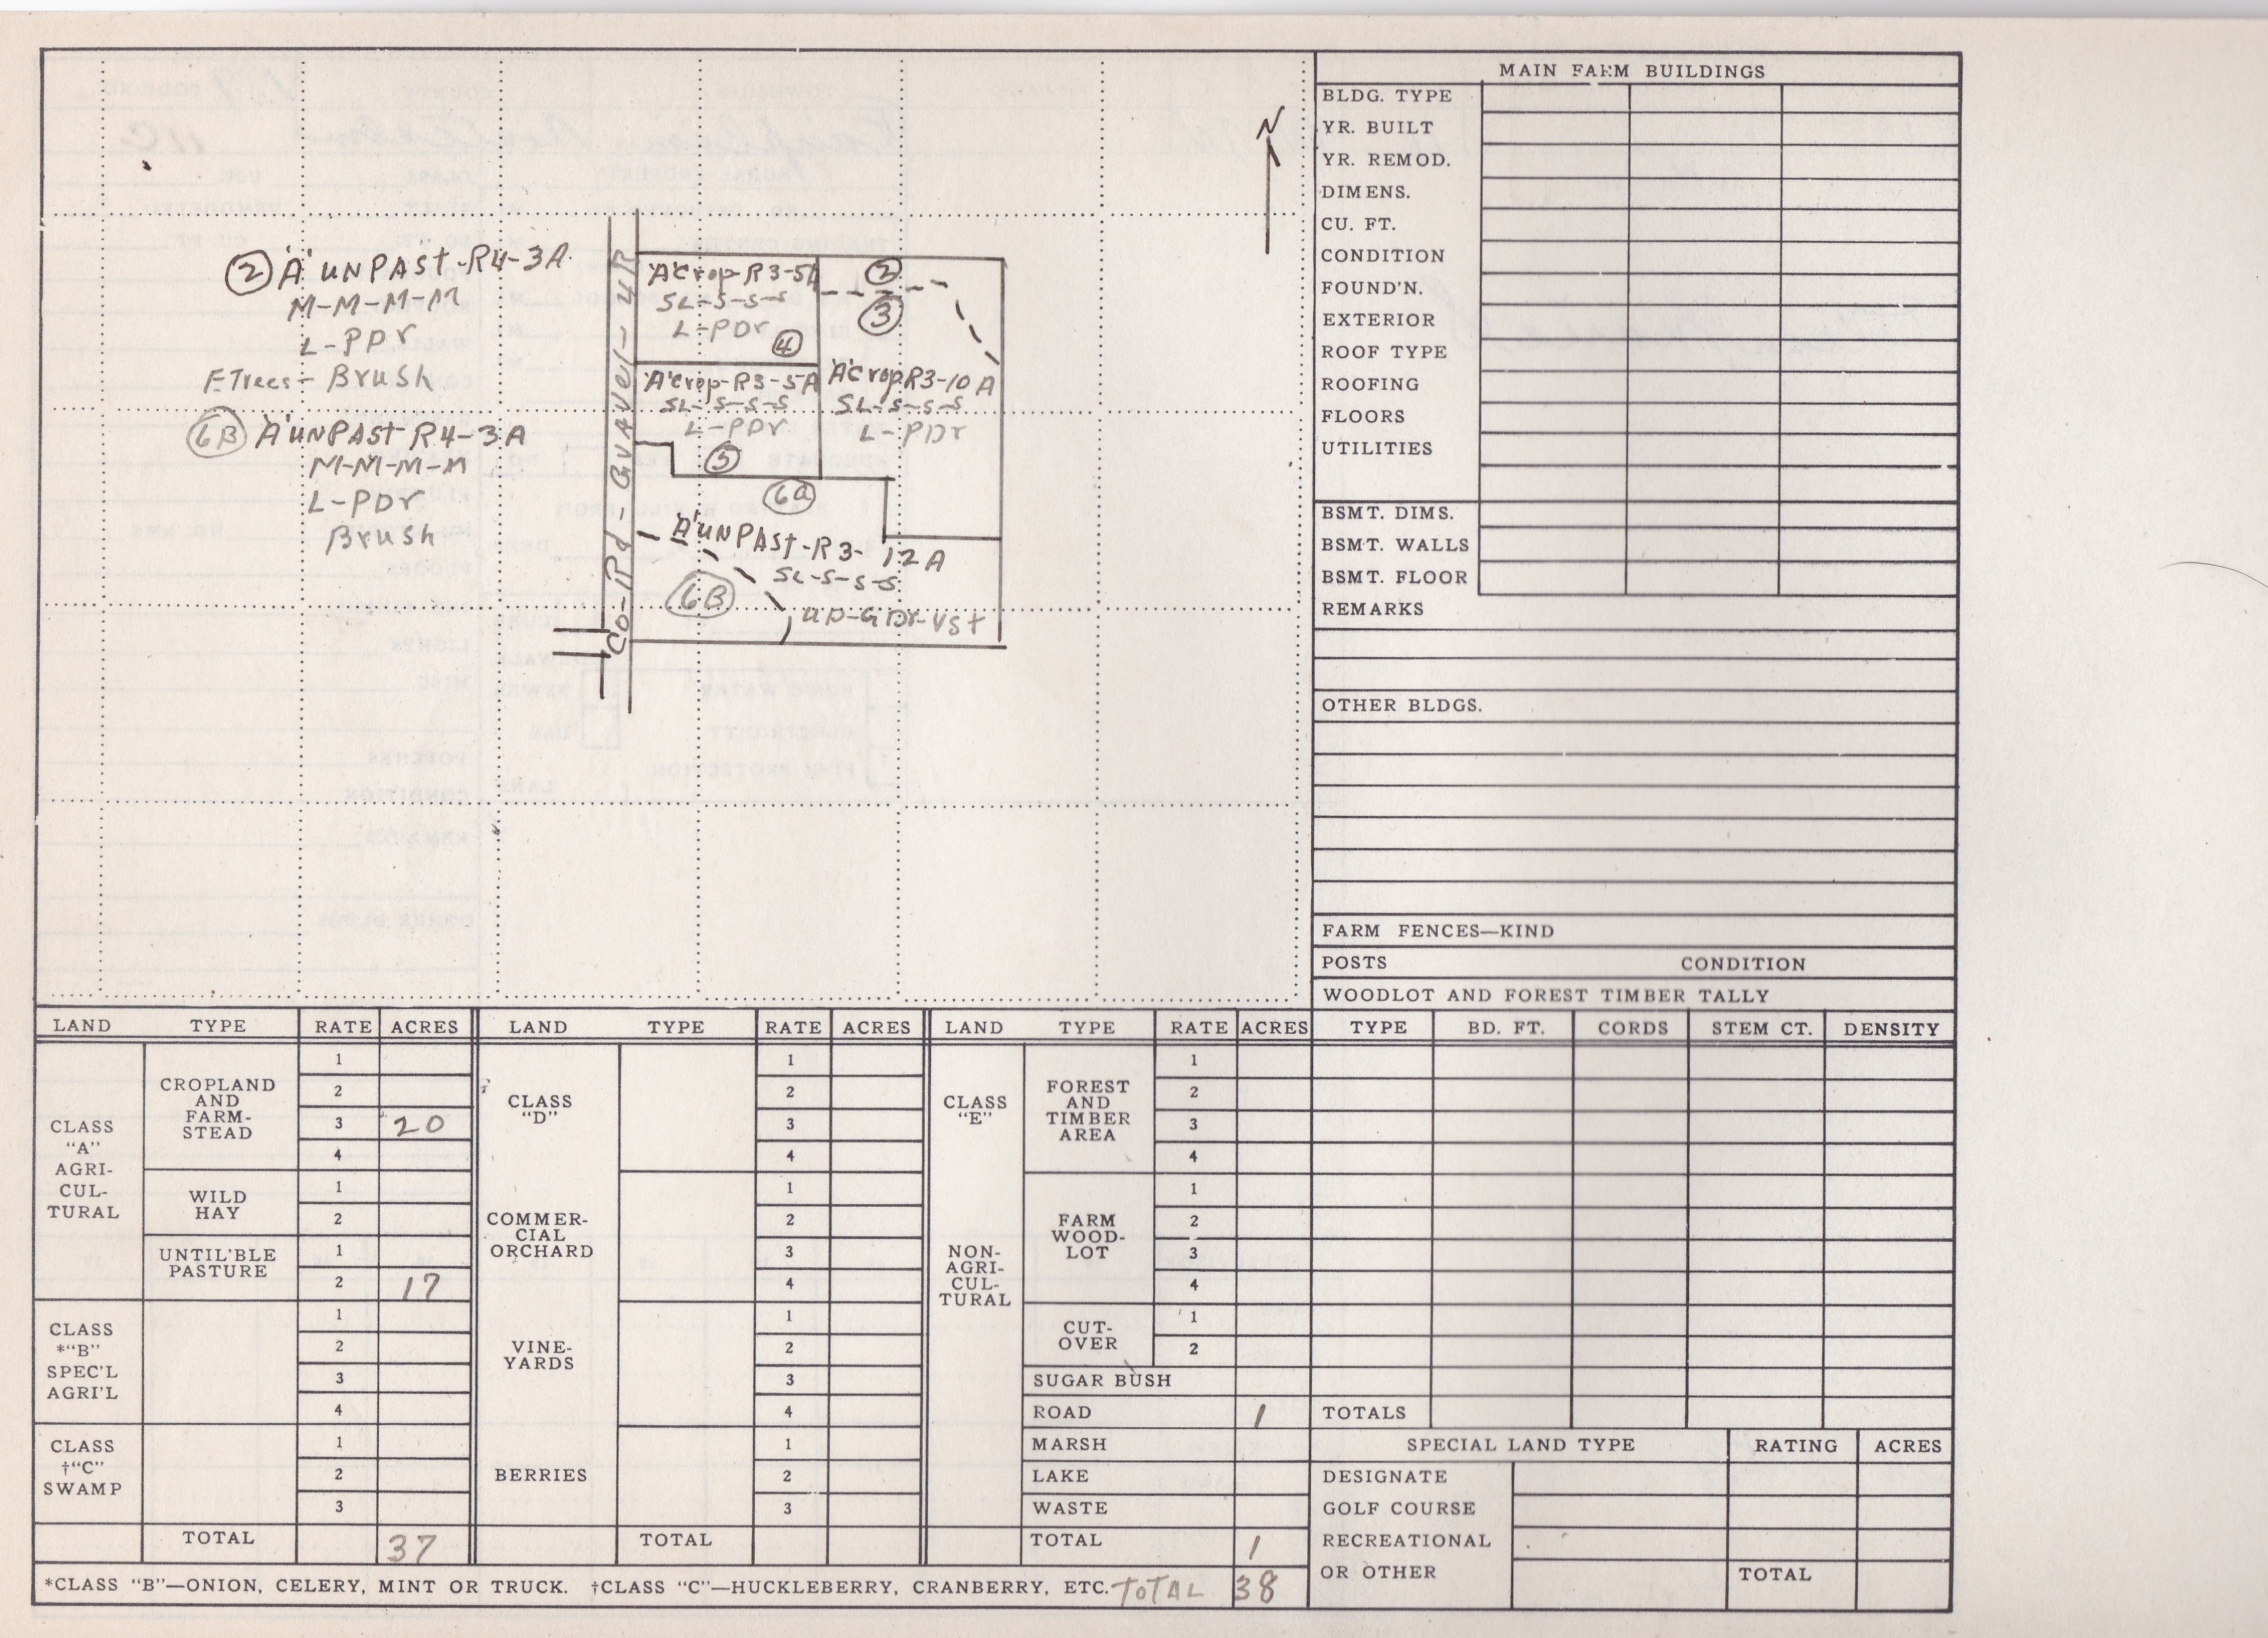 N
② "A" UNPAST-R4-3A
M-M-M-M
L-PDr
F Trees - Brush
6B "A" UNPAST R4-3A
M-M-M-M
L-PDr
Brush
Co-Rd-Gravel-4R
"A" Crop-R3-5A
SL-S-S-S
L-PDr
④
②
③
"A" Crop-R3-5A
SL-S-S-S
L-PDr
⑤
"A" Crop R3-10A
SL-S-S-S
L-PDr
6a
"A" UNPAST-R3-12A
SL-S-S-S
UD-GDr-VSt
6B
MAIN FARM BUILDINGS
BLDG. TYPE
YR. BUILT
YR. REMOD.
DIMENS.
CU. FT.
CONDITION
FOUND'N.
EXTERIOR
ROOF TYPE
ROOFING
FLOORS
UTILITIES
BSMT. DIMS.
BSMT. WALLS
BSMT. FLOOR
REMARKS
OTHER BLDGS.
FARM FENCES—KIND
POSTS CONDITION
WOODLOT AND FOREST TIMBER TALLY
TYPE BD. FT. CORDS STEM CT. DENSITY
TOTALS
LAND TYPE RATE ACRES
CLASS
"A"
AGRI-
CUL-
TURAL
CROPLAND
AND
FARM-
STEAD
1
2
3 20
4
WILD
HAY
1
2
UNTIL'BLE
PASTURE
1
2 17
CLASS
*"B"
SPEC'L
AGRI'L
1
2
3
4
CLASS
†"C"
SWAMP
1
2
3
TOTAL 37
LAND TYPE RATE ACRES
CLASS
"D"
1
2
3
4
COMMER-
CIAL
ORCHARD
1
2
3
4
VINE-
YARDS
1
2
3
4
BERRIES
1
2
3
TOTAL
LAND TYPE RATE ACRES
CLASS
"E"
NON-
AGRI-
CUL-
TURAL
FOREST
AND
TIMBER
AREA
1
2
3
4
FARM
WOOD-
LOT
1
2
3
4
CUT-
OVER
1
2
SUGAR BUSH
ROAD 1
MARSH
LAKE
WASTE
TOTAL 1
SPECIAL LAND TYPE RATING ACRES
DESIGNATE
GOLF COURSE
RECREATIONAL
OR OTHER
TOTAL
*CLASS "B"—ONION, CELERY, MINT OR TRUCK. †CLASS "C"—HUCKLEBERRY, CRANBERRY, ETC. TOTAL 38